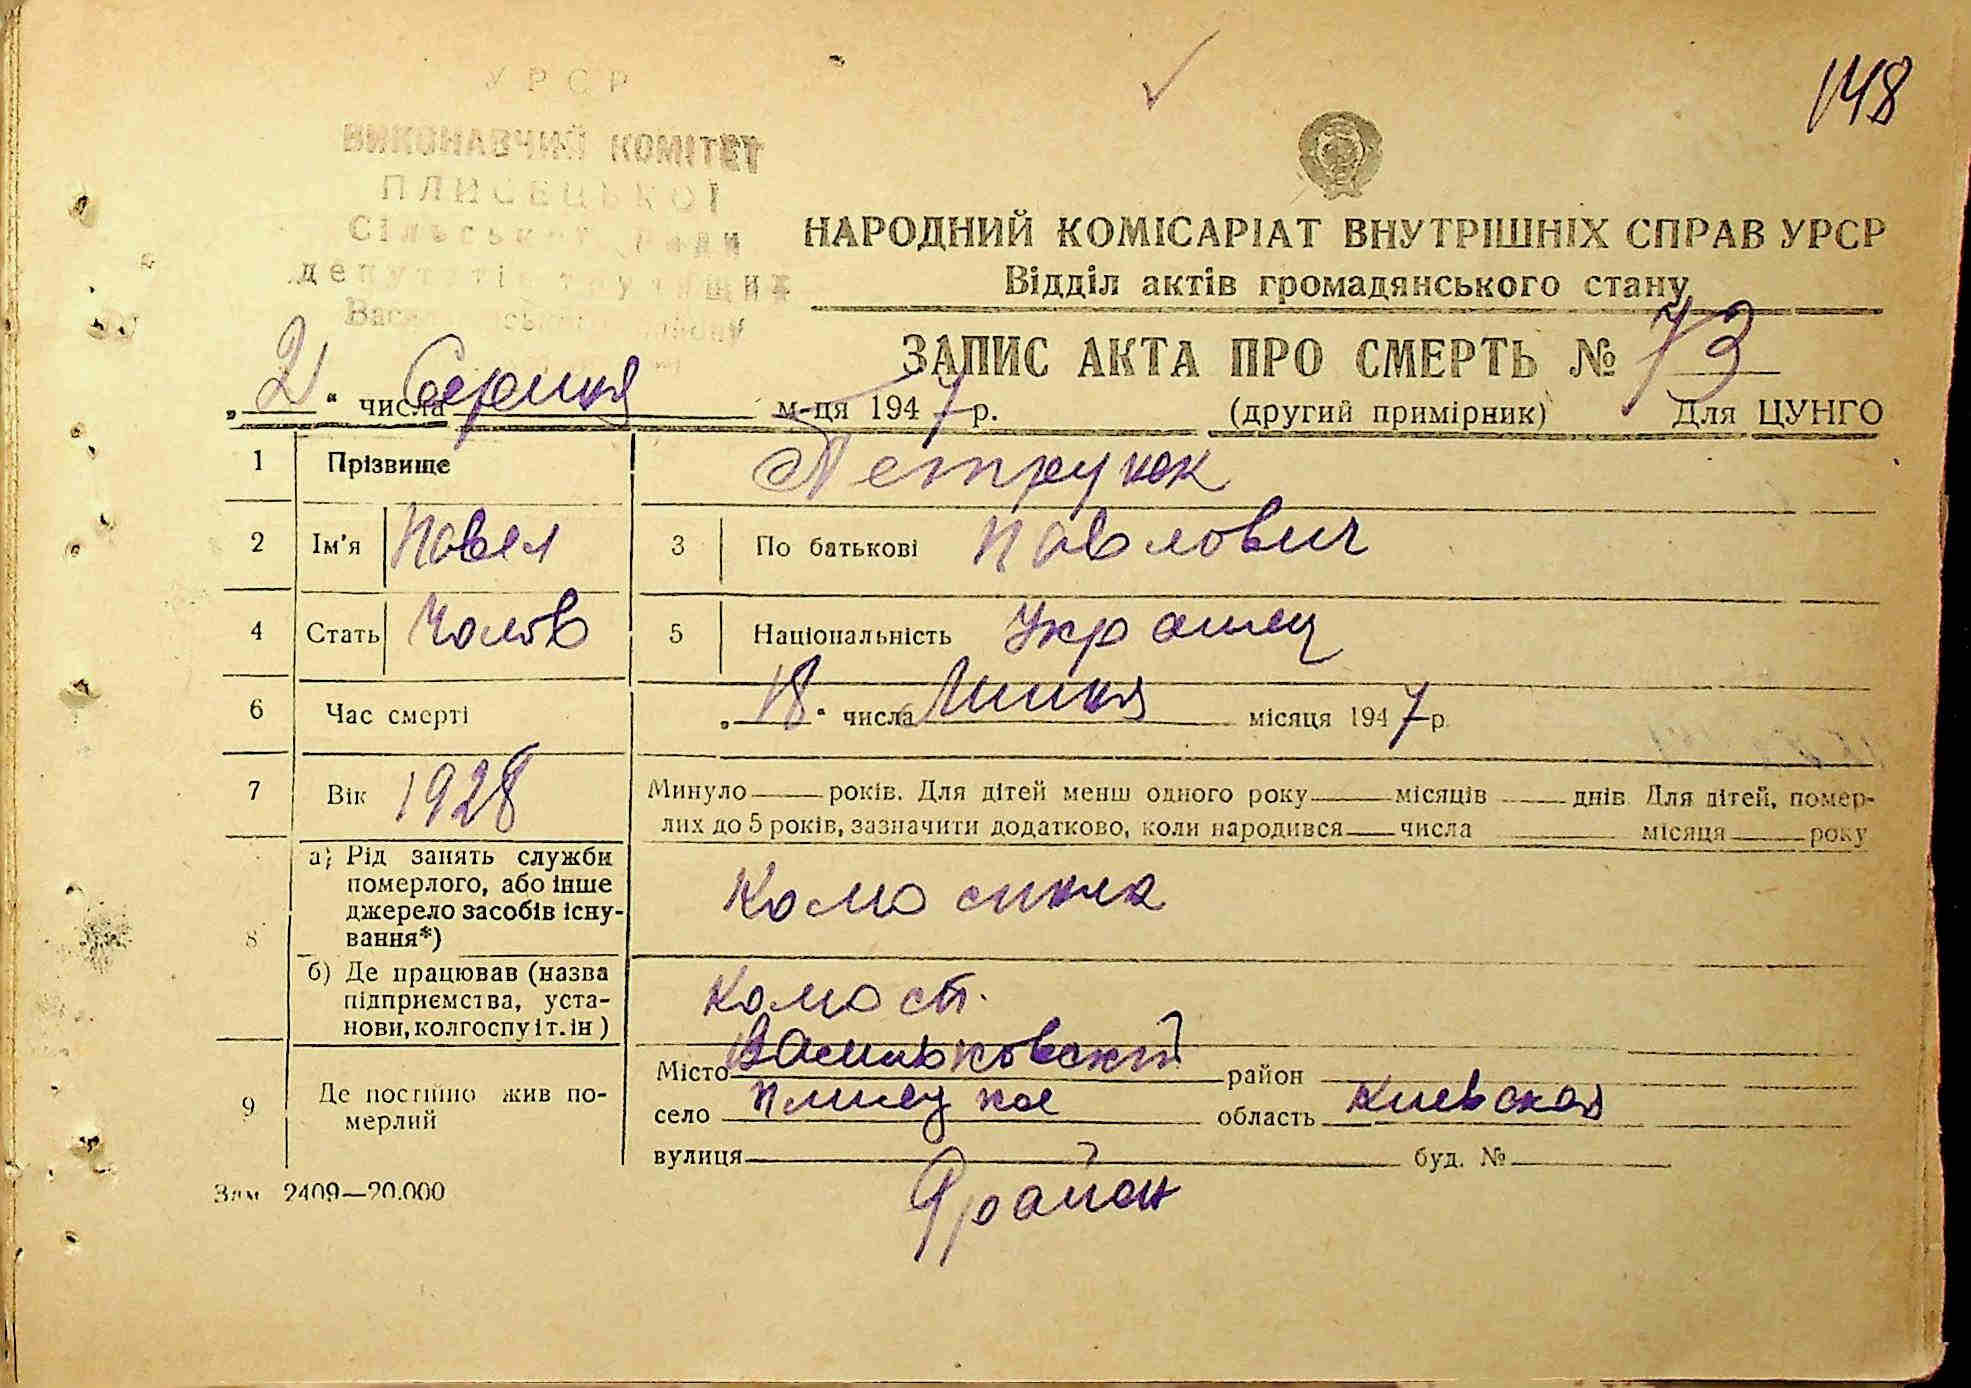 148
УРСР
ВИКОНАВЧИЙ КОМІТЕТ
ПЛИСЕЦЬКОЇ
Сільської Ради
депутатів трудящих
НАРОДНИЙ КОМІСАРІАТ ВНУТРІШНІХ СПРАВ УРСР
Відділ актів громадянського стану
ЗАПИС АКТА ПРО СМЕРТЬ № 73
„2“ числа Серпня м-ця 1947 р. (другий примірник) Для ЦУНГО
1 Прізвище
2 Ім'я Павел 3 По батькові Павлович
4 Стать Чолов 5 Національність
6 Час смерті „18“ числа Липня місяця 1947 р.
7 Вік 1928 Минуло років. Для дітей менш одного року місяців днів Для дітей, помер-
лих до 5 років, зазначити додатково, коли народився числа місяця року
8 а) Рід занять служби
померлого, або інше
джерело засобів існу-
вання*)
б) Де працював (назва
підприємства, уста-
нови, колгоспу і т. ін)
9 Де постійно жив по-
мерлий
Місто Васильковский район
село Плисецкое область Киевская
вулиця буд. №
Зам 2409—20.000